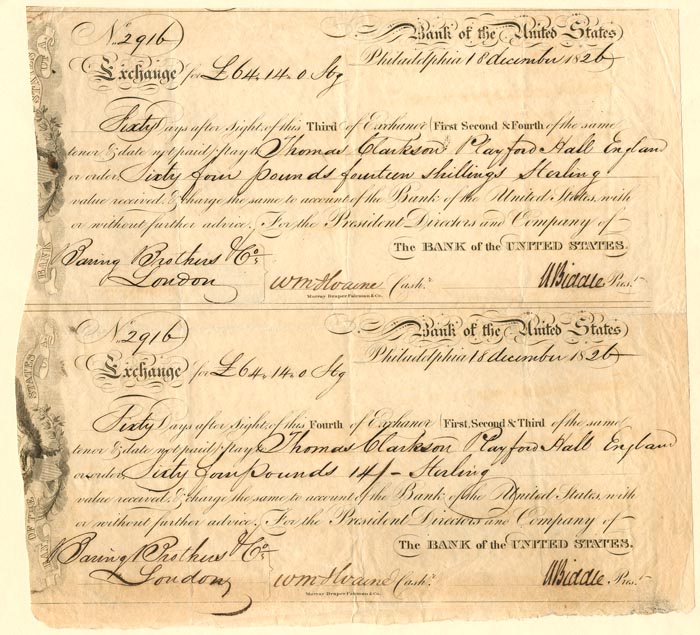 No. 2916
Bank of the United States
Philadelphia 18 december 1826
Exchange for £64.14.0 Stg
Sixty Days after Sight, of this Third of Exchange (First Second & Fourth of the same
tenor & date not paid) pay to Thomas Clarkson Playford Hall England
or order Sixty four pounds fourteen shillings Sterling
value received, & charge the same to account of the Bank of the United States, with
or without further advice. For the President Directors and Company of
The BANK of the UNITED STATES.
Baring Brothers & Co.
London
Wm McIlvaine Cashr.
N Biddle Prest.
Murray Draper Fairman & Co.
BANK
STATES
No. 2916
Bank of the United States
Philadelphia 18 december 1826
Exchange for £64.14.0 Stg
Sixty Days after Sight, of this Fourth of Exchange (First, Second & Third of the same
tenor & date not paid) pay to Thomas Clarkson Playford Hall England
or order Sixty four pounds 14/- Sterling
value received, & charge the same to account of the Bank of the United States, with
or without further advice. For the President Directors and Company of
The BANK of the UNITED STATES.
Baring Brothers & Co.
London
Wm McIlvaine Cashr.
N Biddle Prest.
Murray Draper Fairman & Co.
OF THE
STATES